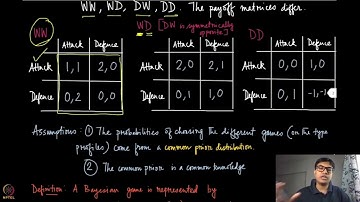 WW, WD, DW, DD. The payoff matrices differ.
WW
WD [DW is symmetrically opposite]
DD
Attack Defence
Attack 1, 1 2, 0
Defence 0, 2 0, 0
Attack Defence
Attack 2, 0 2, 1
Defence 0, 1 1, 0
Attack Defence
Attack 0, 0 1, 0
Defence 0, 1 -1, -1
Assumptions: ① The probabilities of choosing the different games (or the type
profiles) come from a common prior distribution.
② The common prior is a common knowledge
Definition: A Bayesian game is represented by
NPTEL